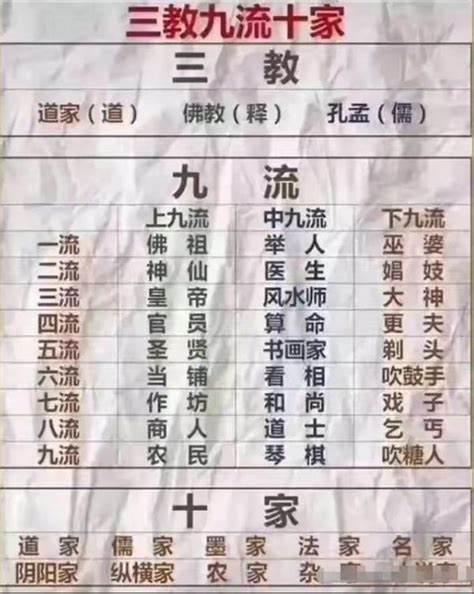 三教九流十家
三 教
道家（道） 佛教（释） 孔孟（儒）
九 流
上九流 中九流 下九流
一流 佛 祖 举 人 巫 婆
二流 神 仙 医 生 娼 妓
三流 皇 帝 风水师 大 神
四流 官 员 算 命 更 夫
五流 圣 贤 书画家 剃 头
六流 当 铺 看 相 吹鼓手
七流 作 坊 和 尚 戏 子
八流 商 人 道 士 乞 丐
九流 农 民 琴 棋 吹糖人
十 家
道 家 儒 家 墨 家 法 家 名 家
阴阳家 纵横家 农 家 杂